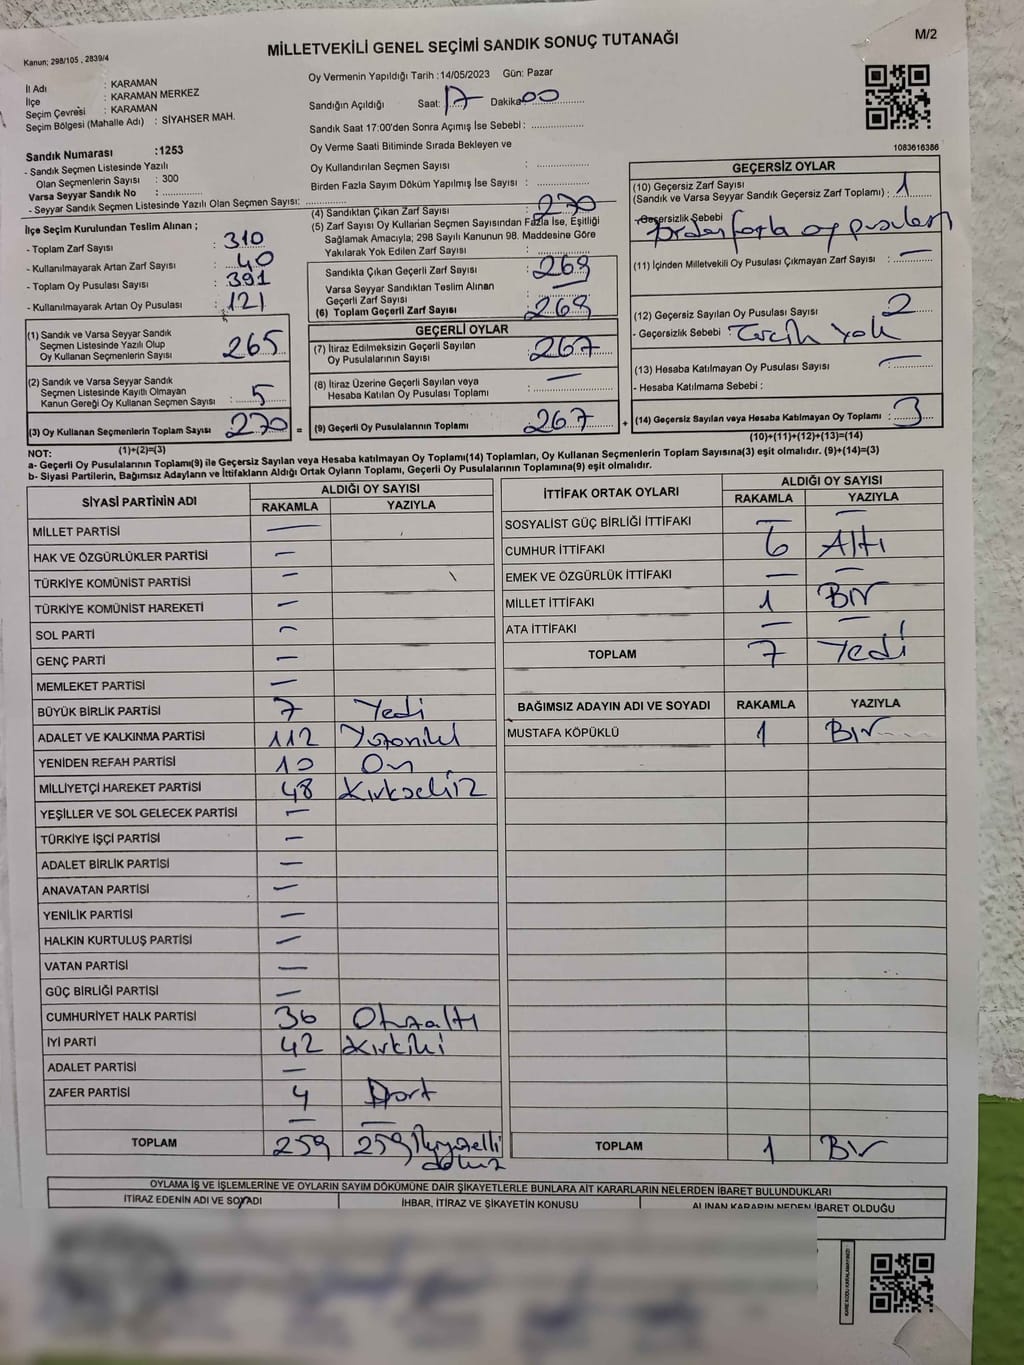 MİLLETVEKİLİ GENEL SEÇİMİ SANDIK SONUÇ TUTANAĞI
M/2
Kanun; 298/105 , 2839/4
İl Adı : KARAMAN
İlçe : KARAMAN MERKEZ
Seçim Çevresi : KARAMAN
Seçim Bölgesi (Mahalle Adı) : SİYAHSER MAH.
Sandık Numarası :1253
- Sandık Seçmen Listesinde Yazılı
Olan Seçmenlerin Sayısı : 300
Varsa Seyyar Sandık No :
- Seyyar Sandık Seçmen Listesinde Yazılı Olan Seçmen Sayısı:
Oy Vermenin Yapıldığı Tarih :14/05/2023 Gün: Pazar
Sandığın Açıldığı Saat: 17 Dakika 00
Sandık Saat 17:00'den Sonra Açımış İse Sebebi :
Oy Verme Saati Bitiminde Sırada Bekleyen ve
Oy Kullandırılan Seçmen Sayısı :
Birden Fazla Sayım Döküm Yapılmış İse Sayısı :
1083616386
İlçe Seçim Kurulundan Teslim Alınan ;
- Toplam Zarf Sayısı : 310
- Kullanılmayarak Artan Zarf Sayısı : 40
- Toplam Oy Pusulası Sayısı : 391
- Kullanılmayarak Artan Oy Pusulası : 121
(1) Sandık ve Varsa Seyyar Sandık
Seçmen Listesinde Yazılı Olup
Oy Kullanan Seçmenlerin Sayısı : 265
(2) Sandık ve Varsa Seyyar Sandık
Seçmen Listesinde Kayıtlı Olmayan
Kanun Gereği Oy Kullanan Seçmen Sayısı : 5
(3) Oy Kullanan Seçmenlerin Toplam Sayısı : 270 =
(1)+(2)=(3)
(4) Sandıktan Çıkan Zarf Sayısı : 270
(5) Zarf Sayısı Oy Kullanan Seçmen Sayısından Fazla İse, Eşitliği
Sağlamak Amacıyla; 298 Sayılı Kanunun 98. Maddesine Göre
Yakılarak Yok Edilen Zarf Sayısı :
Sandıkta Çıkan Geçerli Zarf Sayısı : 269
Varsa Seyyar Sandıktan Teslim Alınan
Geçerli Zarf Sayısı : —
(6) Toplam Geçerli Zarf Sayısı : 269
GEÇERLİ OYLAR
(7) İtiraz Edilmeksizin Geçerli Sayılan
Oy Pusulalarının Sayısı : 267
(8) İtiraz Üzerine Geçerli Sayılan veya
Hesaba Katılan Oy Pusulası Toplamı : —
(9) Geçerli Oy Pusulalarının Toplamı : 267 +
GEÇERSİZ OYLAR
(10) Geçersiz Zarf Sayısı
(Sandık ve Varsa Seyyar Sandık Geçersiz Zarf Toplamı) : 1
-Geçersizlik Sebebi : Birden fazla oy pusulası
(11) İçinden Milletvekili Oy Pusulası Çıkmayan Zarf Sayısı : —
(12) Geçersiz Sayılan Oy Pusulası Sayısı : 2
- Geçersizlik Sebebi : Tercih Yok
(13) Hesaba Katılmayan Oy Pusulası Sayısı : —
- Hesaba Katılmama Sebebi :
(14) Geçersiz Sayılan veya Hesaba Katılmayan Oy Toplamı : 3
(10)+(11)+(12)+(13)=(14)
NOT:
a- Geçerli Oy Pusulalarının Toplamı(9) ile Geçersiz Sayılan veya Hesaba katılmayan Oy Toplamı(14) Toplamları, Oy Kullanan Seçmenlerin Toplam Sayısına(3) eşit olmalıdır. (9)+(14)=(3)
b- Siyasi Partilerin, Bağımsız Adayların ve İttifakların Aldığı Ortak Oyların Toplamı, Geçerli Oy Pusulalarının Toplamına(9) eşit olmalıdır.
SİYASİ PARTİNİN ADI ALDIĞI OY SAYISI
RAKAMLA YAZIYLA
MİLLET PARTİSİ —
HAK VE ÖZGÜRLÜKLER PARTİSİ —
TÜRKİYE KOMÜNİST PARTİSİ —
TÜRKİYE KOMÜNİST HAREKETİ —
SOL PARTİ —
GENÇ PARTİ —
MEMLEKET PARTİSİ —
BÜYÜK BİRLİK PARTİSİ 7 Yedi
ADALET VE KALKINMA PARTİSİ 112 Yüzoniki
YENİDEN REFAH PARTİSİ 10 On
MİLLİYETÇİ HAREKET PARTİSİ 48 Kırksekiz
YEŞİLLER VE SOL GELECEK PARTİSİ —
TÜRKİYE İŞÇİ PARTİSİ —
ADALET BİRLİK PARTİSİ —
ANAVATAN PARTİSİ —
YENİLİK PARTİSİ —
HALKIN KURTULUŞ PARTİSİ —
VATAN PARTİSİ —
GÜÇ BİRLİĞİ PARTİSİ —
CUMHURİYET HALK PARTİSİ 36 Otuzaltı
İYİ PARTİ 42 Kırkiki
ADALET PARTİSİ —
ZAFER PARTİSİ 4 Dört
— —
TOPLAM 259 259 İkiyüzelli
dokuz
İTTİFAK ORTAK OYLARI ALDIĞI OY SAYISI
RAKAMLA YAZIYLA
SOSYALİST GÜÇ BİRLİĞİ İTTİFAKI — —
CUMHUR İTTİFAKI 6 Altı
EMEK VE ÖZGÜRLÜK İTTİFAKI — —
MİLLET İTTİFAKI 1 Bir
ATA İTTİFAKI — —
TOPLAM 7 Yedi
BAĞIMSIZ ADAYIN ADI VE SOYADI RAKAMLA YAZIYLA
MUSTAFA KÖPÜKLÜ 1 Bir
TOPLAM 1 Bir
OYLAMA İŞ VE İŞLEMLERİNE VE OYLARIN SAYIM DÖKÜMÜNE DAİR ŞİKAYETLERLE BUNLARA AİT KARARLARIN NELERDEN İBARET BULUNDUKLARI
İTİRAZ EDENİN ADI VE SOYADI İHBAR, İTİRAZ VE ŞİKAYETİN KONUSU ALINAN KARARIN NEDEN İBARET OLDUĞU